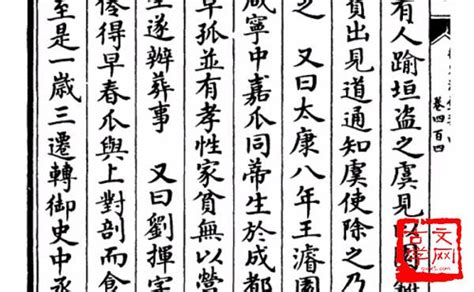 卷四百四
有人踰垣盜之虞見以園
負出見道通知虞使除之乃
之 又曰太康八年王濬園
咸寧中嘉瓜同蒂生於成都
早孤並有孝性家貧無以營
生遂辦葬事 又曰劉揮字
俊得早春瓜與上對剖而食
至是一歲三遷轉御史中丞
文网